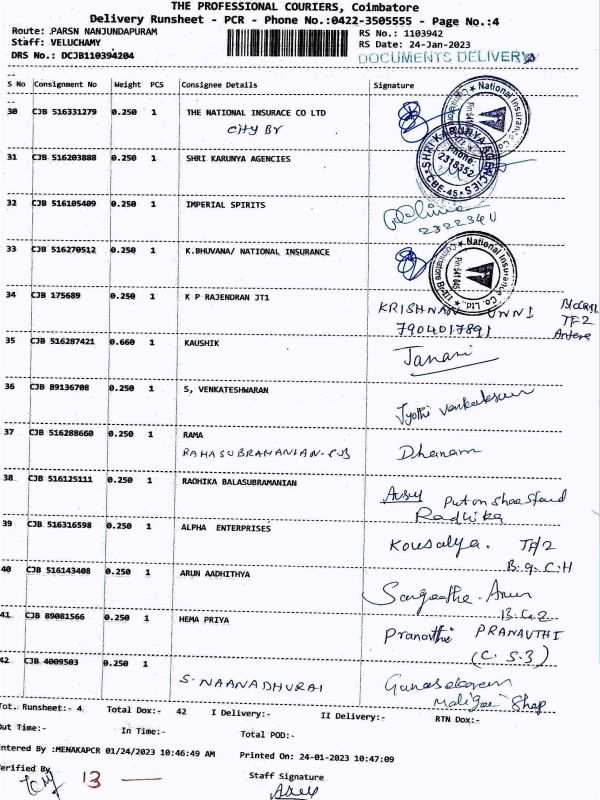 THE PROFESSIONAL COURIERS, Coimbatore
Delivery Runsheet - PCR - Phone No.:0422-3505555 - Page No.:4
Route: .PARSN NANJUNDAPURAM
Staff: VELUCHAMY
DRS No.: DCJB110394204
RS No.: 1103942
RS Date: 24-Jan-2023
DOCUMENTS DELIVERY
S No Consignment No Weight PCS Consignee Details Signature
30 CJB 516331279 0.250 1 THE NATIONAL INSURACE CO LTD
CHY BY
National Insurance Co. Ltd.
31 CJB 516203888 0.250 1 SHRI KARUNYA AGENCIES
SHRI KARUNYA AGENCIES
Phone: 2318352
CBE-45
32 CJB 516105409 0.250 1 IMPERIAL SPIRITS
33 CJB 516270512 0.250 1 K.BHUVANA/ NATIONAL INSURANCE
National Insurance Co. Ltd.
Pin 641 045
34 CJB 175689 0.250 1 K P RAJENDRAN JT1
KRISHNAN UNNI
7904017891
TF2
35 CJB 516287421 0.660 1 KAUSHIK
Janani
36 CJB 89136708 0.250 1 S, VENKATESHWARAN
Jyothi Venkateswar
37 CJB 516288660 0.250 1 RAMA
RAMASUBRAMANIAN-CJB
Dhanam
38 CJB 516125111 0.250 1 RADHIKA BALASUBRAMANIAN
Put on shoe stand
Radhika
39 CJB 516316598 0.250 1 ALPHA ENTERPRISES
Kousalya. TF/2
40 CJB 516143408 0.250 1 ARUN AADHITHYA
B.9.C.H
Sangeetha. Arun
41 CJB 89081566 0.250 1 HEMA PRIYA
B.C.2
Pranavthi PRANAVTHI
(C.S.3)
42 CJB 4009503 0.250 1
S. NAANADHURAI
Gunasekaran
Maligai Shop
Tot. Runsheet:- 4 Total Dox:- 42 I Delivery:- II Delivery:- RTN Dox:-
Out Time:- In Time:- Total POD:-
Entered By :MENAKAPCR 01/24/2023 10:46:49 AM Printed On: 24-01-2023 10:47:09
Verified By
13
Staff Signature